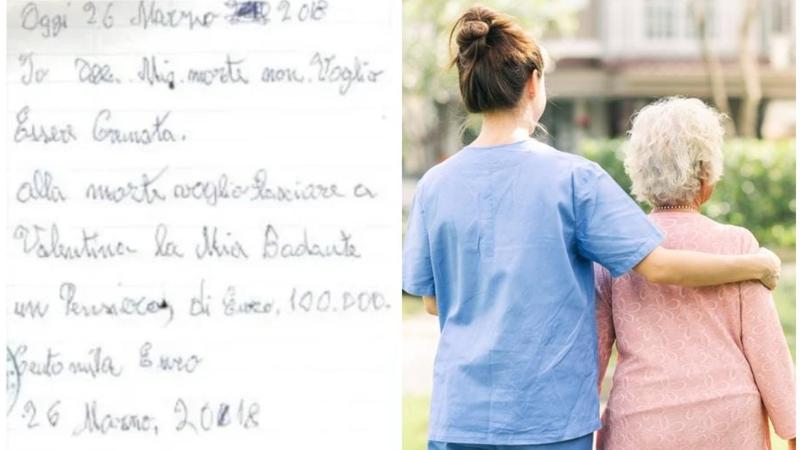 Oggi 26 Marzo 2018
Io alla Mia morte non Voglio
Essere Cremata.
alla morte voglio lasciare a
Valentina la Mia Badante
un Pensiero, di Euro, 100.000.
Cento mila Euro
26 Marzo, 2018